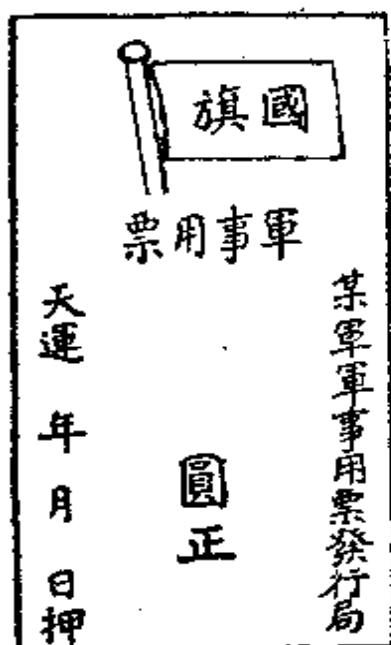 國旗
軍事用票
某軍軍事用票發行局
圓正
天運 年 月 日押